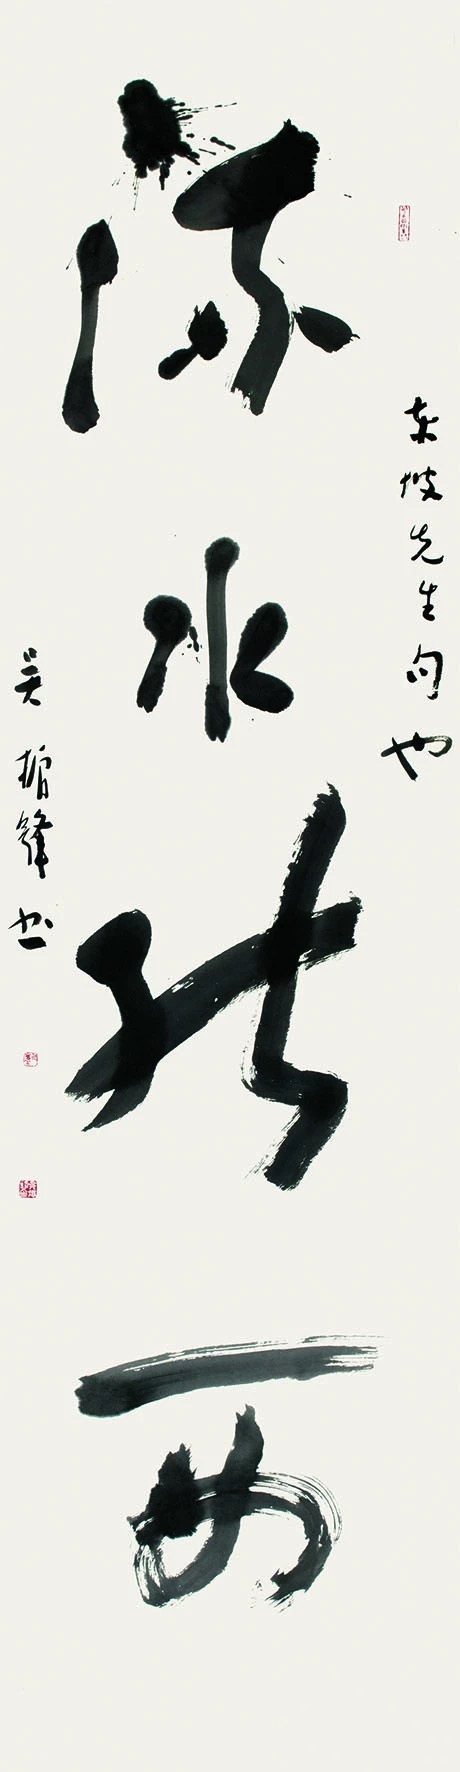 东坡先生句也
流水能西
吴 锋书